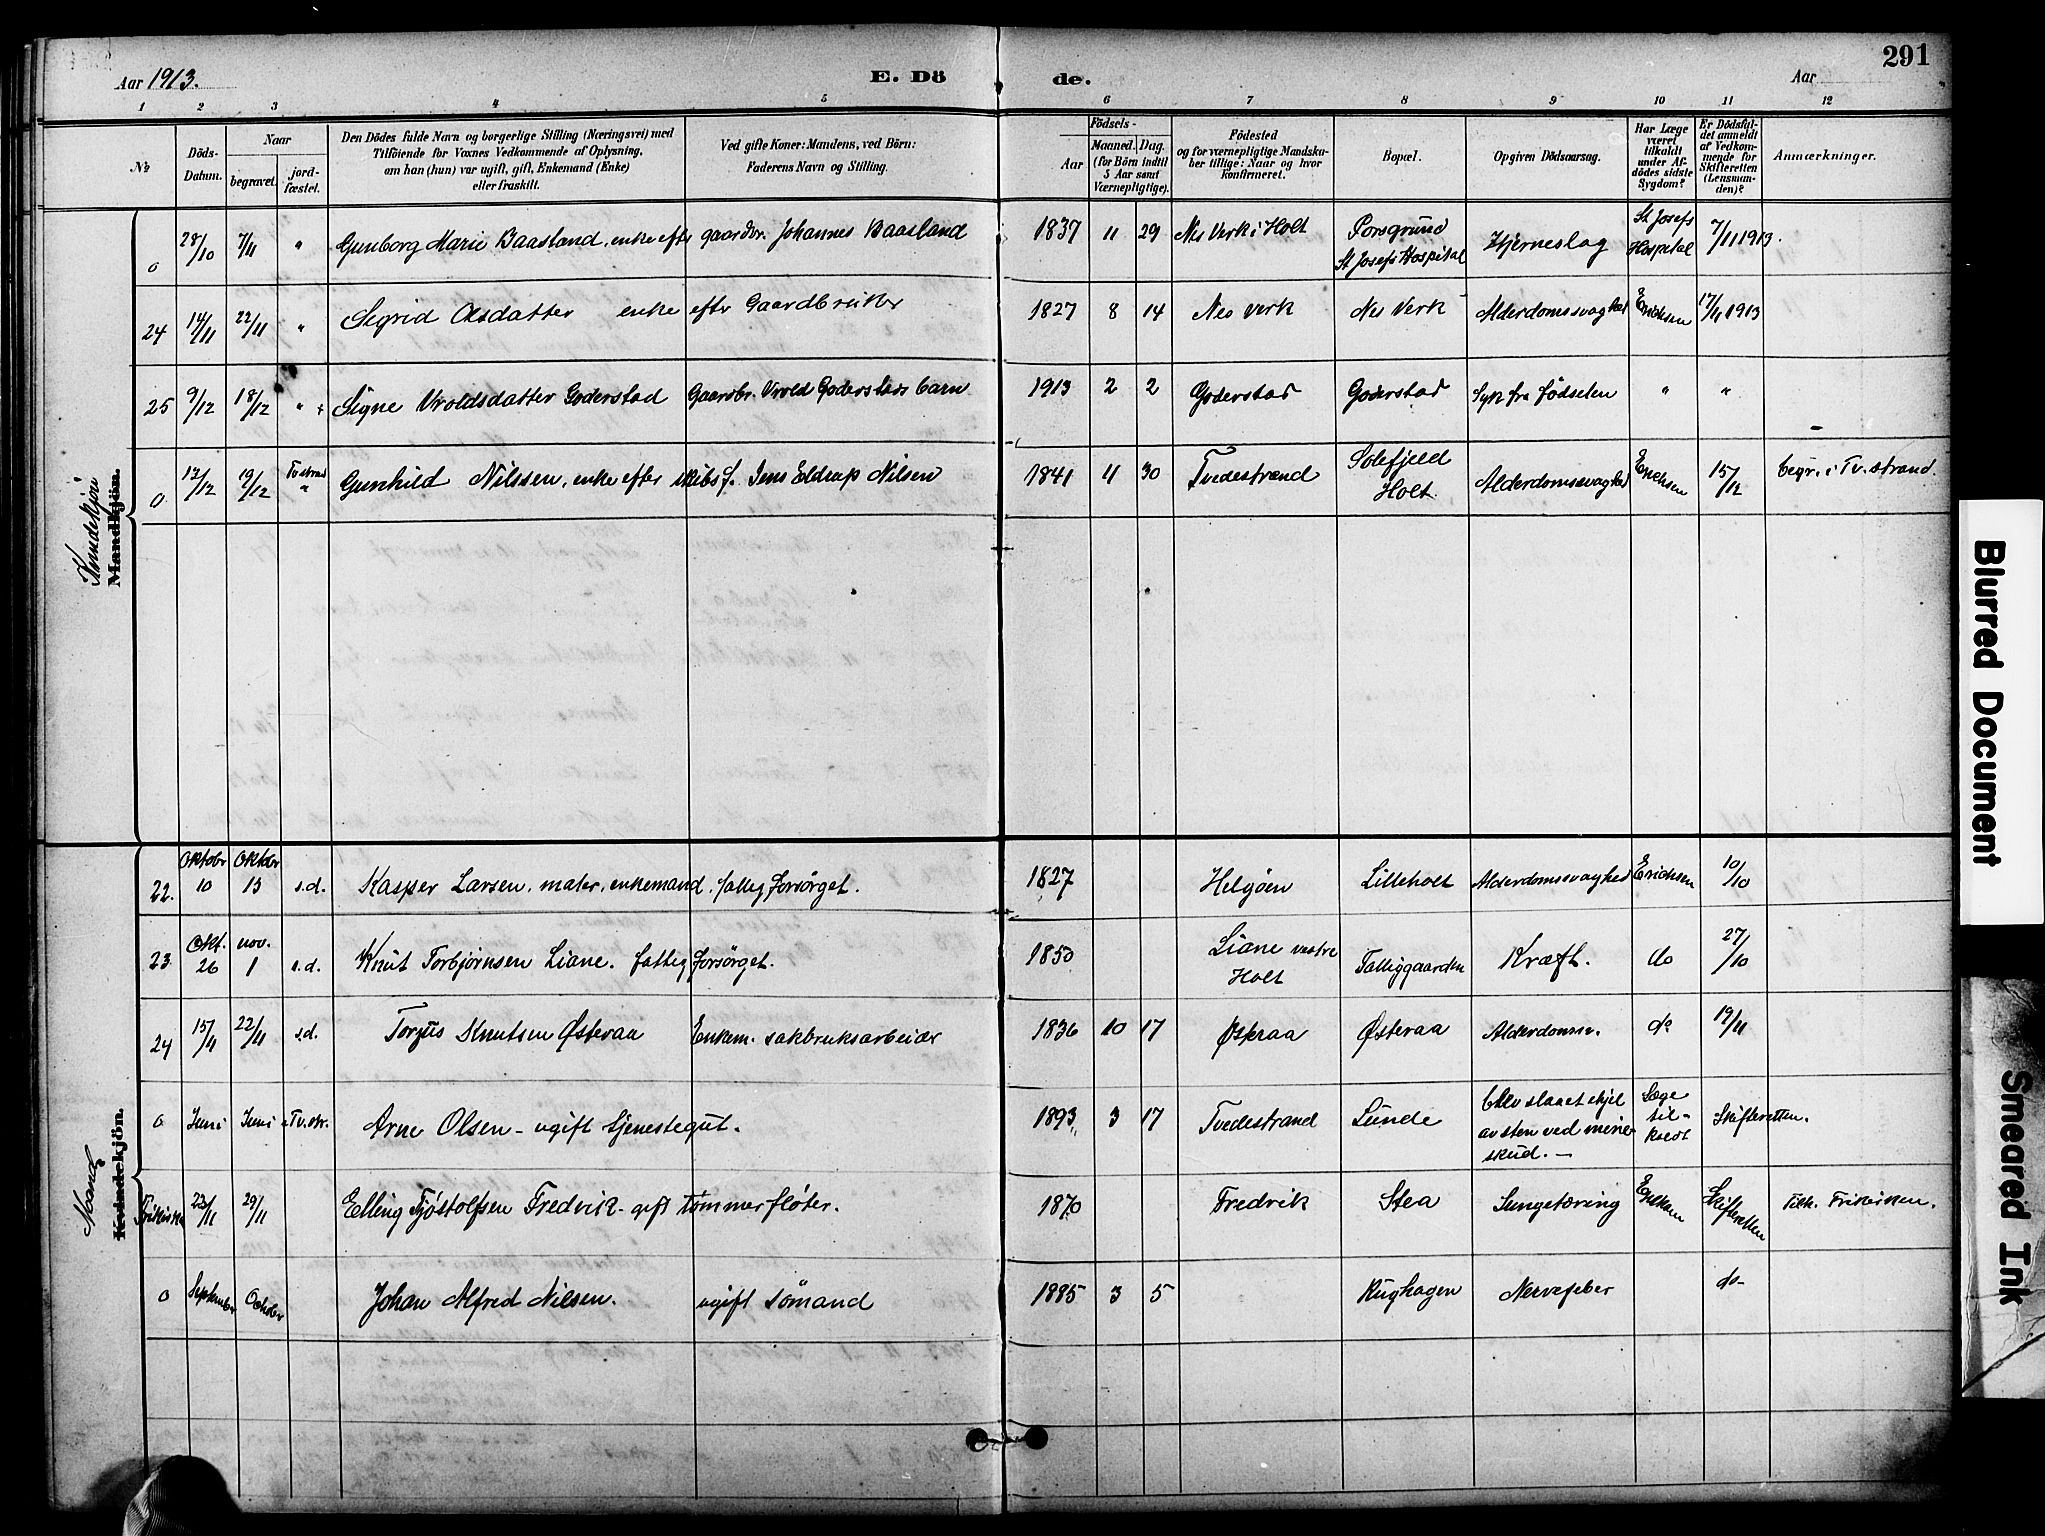 291
Aar 1913. E. Dö de. Aar
1 2 3 4 5 6 7 8 9 10 11 12
No
Döds-Datum.
Naar
begravet.
jord-fæstet.
Den Dödes fulde Navn og borgerlige Stilling (Næringsvei) med
Tilföiende for Voxnes Vedkommende af Oplysning,
om han (hun) var ugift, gift, Enkemand (Enke)
eller fraskilt.
Ved gifte Koner: Mandens, ved Börn:
Faderens Navn og Stilling.
Födsels-
Aar
Maaned. Dag.
(for Börn indtil
5 Aar samt
Værnepligtige).
Födested
og for værnepligtige Mandska-
ber tillige: Naar og hvor
Konfirmeret.
Bopæl.
Opgiven Dödsaarsag.
Har Læge
været
tilkaldt
under Af-
dödes sidste
Sygdom?
Er Dödsfal-
det anmeldt
af Vedkom-
mende for
Skifteretten
(Lensman-
den)?
Anmærkninger.
Kvindekjön
Mandkjön.
0 28/10 7/11 " Gunborg Marie Baasland, enke efter gaardbr. Johannes Baasland 1837 11 29 Nes Verk i Holt Porsgrund St Josefs Hospital Hjerneslag St Josefs Hospital 7/11 1913.
24 14/11 22/11 " Sigrid Olsdatter enke efter Gaardbruker 1827 8 14 Nes Verk Nes Verk Alderdomssvaghed Erichsen 17/11 1913
25 9/12 18/12 " Signe Vroldsdatter Goderstad Gaardbr. Vrold Goderstads barn 1913 2 2 Goderstad Goderstad Syk fra fødselen " "
0 12/12 19/12 Tvstrand " Gunhild Nilssen, enke efter skibsf. Jens Eldrup Nilsen 1841 11 30 Tvedestrand Solefjeld Holt Alderdomssvaghed Erichsen 15/12 begr. i Tv.strand.
Mand
Kvindekjön.
22. Oktober 10 Oktobr 15 s.d. Kasper Larsen, maler, enkemand, fattigforsørget. 1827 Helgøen Lilleholt Alderdomssvaghed Erichsen 10/10
23 Okt. 26 nov. 1 s.d. Knut Torbjørnsen Liane. fattigforsørget. 1850 Liane vestre Holt Fattiggaarden Kræft. do 27/10
24 15/11 22/11 s.d. Torjus Knutsen Østeraa Enkem. sakbruksarbeider 1836 10 17 Østeraa Østeraa Alderdomssv. do 19/11
0 Juni Juni Tv.str. Arne Olsen - ugift tjenestegut. 1893 3 17 Tvedestrand Lunde blev slaaet ihjel av sten ved mine-skud. — Læge til-kaldt Skifteretten.
Frikirke 23/11 29/11 Elling Tjøstolfsen Fredvik - gift tømmerfløter. 1870 Fredvik Stea Lungetæring Erichsen Skifteretten Tilh. Frikirken.
0 September October Johan Alfred Nilsen. ugift sömand 1885 3 5 Rughagen Nervefeber do-
Blurred Document
Smeared Ink